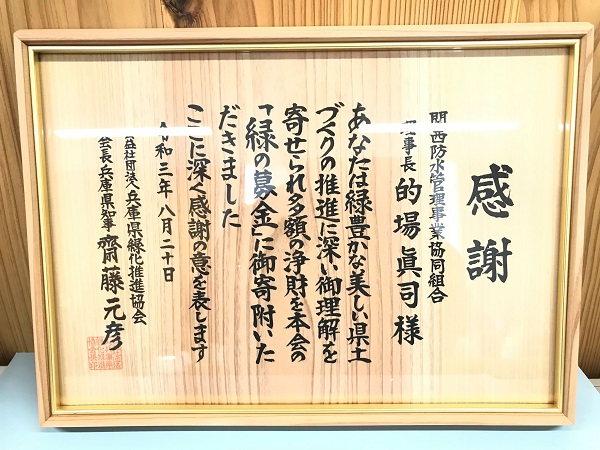 感謝
関西防水管理事業協同組合
理事長 的場眞司様
あなたは緑豊かな美しい県土
づくりの推進に深い御理解を
寄せられ多額の浄財を本会の
「緑の募金」に御寄附いた
だきました
ここに深く感謝の意を表します
令和三年八月二十日
公益社団法人兵庫県緑化推進協会
会長兵庫県知事 齋藤元彦